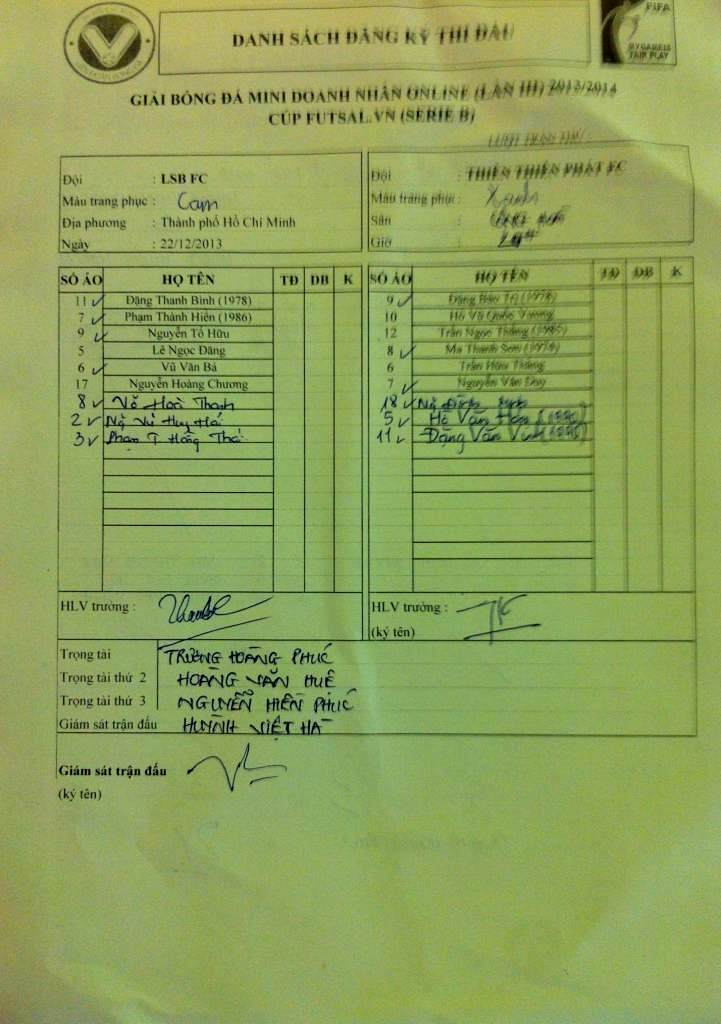 DANH SÁCH ĐĂNG KÝ THI ĐẤU
FIFA
MY GAME IS
FAIR PLAY
GIẢI BÓNG ĐÁ MINI DOANH NHÂN ONLINE (LẦN III) 2013/2014
CÚP FUTSAL.VN (SERIE B)
Đội : LSB FC
Màu trang phục : Cam
Địa phương : Thành phố Hồ Chí Minh
Ngày : 22/12/2013
Đội : THIÊN THIÊN PHÁT FC
Màu trang phục : Xanh
Sân :
Giờ :
SỐ ÁO HỌ TÊN TĐ DB K
11 Đặng Thanh Bình (1978)
7 Phạm Thành Hiển (1986)
9 Nguyễn Tố Hữu
5 Lê Ngọc Đăng
6 Vũ Văn Bá
17 Nguyễn Hoàng Chương
8 Võ Hoài Thanh
2 Ng Vũ Huy Hải
3 Phạm T Hồng Thái
HLV trưởng :
SỐ ÁO HỌ TÊN TĐ DB K
9 Đặng (1978)
10 Hồ Vũ Quốc Vương
12 Trần Ngọc Thắng (1985)
8 Ma Thanh Sơn (1974)
6 Trần Hữu Thắng
7 Nguyễn Văn Duy
18 Ng
5 Hồ Văn
11 Đặng Văn
HLV trưởng :
(ký tên)
Trọng tài TRƯƠNG HOÀNG PHÚC
Trọng tài thứ 2 HOÀNG VĂN HUÊ
Trọng tài thứ 3 NGUYỄN HIỀN PHÚC
Giám sát trận đấu HUỲNH VIỆT HÀ
Giám sát trận đấu
(ký tên)